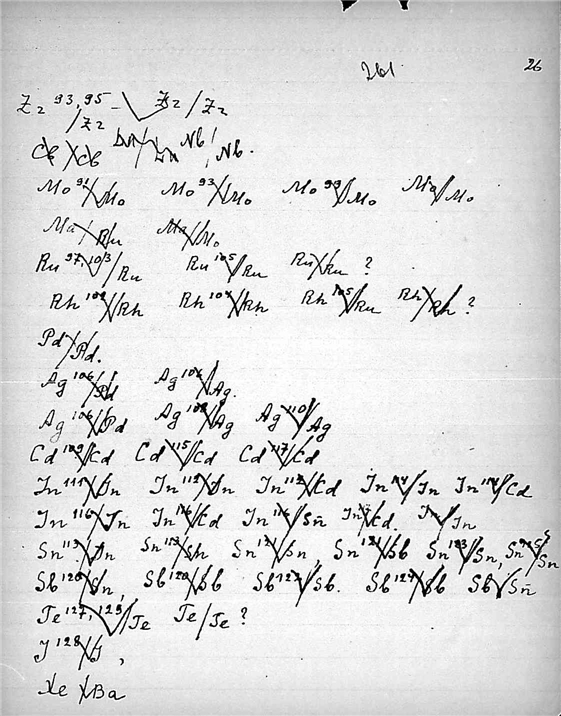 261 26
Zr 93,95 — Zr/Zr
/Zr
Cb Cb Nb/Nb.
Mo⁹¹/Mo Mo⁹³/Mo Mo⁹⁹/Mo Mo/Mo
Ma/Ru Ma/Mo
Ru⁹⁷,¹⁰³/Ru Ru¹⁰⁵/Ru Ru/Ru ?
Rh¹⁰²/Rh Rh¹⁰⁴/Rh Rh¹⁰⁵/Ru Rh/Rh ?
Pd/Pd.
Ag¹⁰⁶/Pd Ag¹⁰⁶/Ag.
Ag¹⁰⁶/Pd Ag¹⁰⁸/Ag Ag¹¹⁰/Ag
Cd¹⁰⁹/Cd Cd¹¹⁵/Cd Cd¹¹⁷/Cd
In¹¹¹/In In¹¹²/In In¹¹²/Cd In¹¹⁴/In In¹¹⁴/Cd
In¹¹⁶/In In¹¹⁶/Cd In¹¹⁶/Sn In/Cd. In/In
Sn¹¹³/In Sn¹¹³/Sn Sn¹²¹/Sn, Sn¹²¹/Sb Sn¹²³/Sn, Sn¹²⁵/Sn
Sb¹²⁰/Sn, Sb¹²⁰/Sb Sb¹²²/Sb. Sb¹²⁴/Sb Sb/Sn
Te¹²⁷,¹²⁹/Te Te/Te ?
J¹²⁸/J,
Xe/Ba